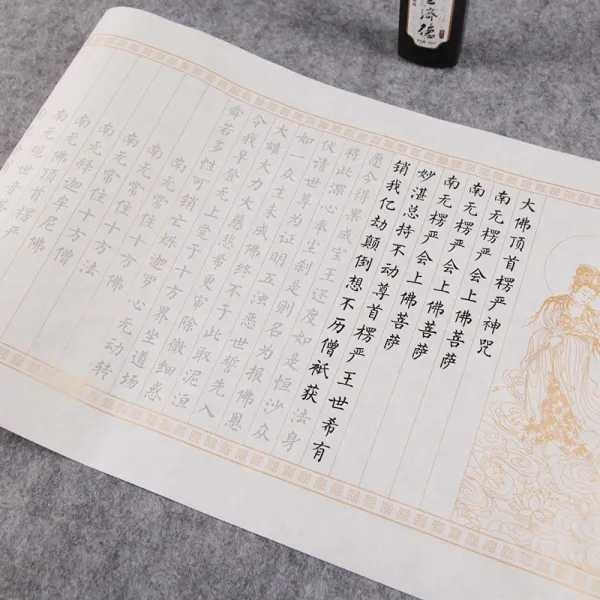 大佛顶首楞严神咒
南无楞严会上佛菩萨
南无楞严会上佛菩萨
南无楞严会上佛菩萨
妙湛总持不动尊首楞严王世希有
销我亿劫颠倒想不历僧祇获法身
愿今得果成宝王还度如是恒沙众
将此深心奉尘刹是则名为报佛恩
伏请世尊为证明五浊恶世誓先入
如一众生未成佛终不于此取泥洹
大雄大力大慈悲希更审除微细惑
令我早登无上觉于十方界坐道场
舜若多性可销亡烁迦罗心无动转
南无常住十方佛
南无常住十方法
南无常住十方僧
南无释迦牟尼佛
南无佛顶首楞严
南无观世音菩
济德